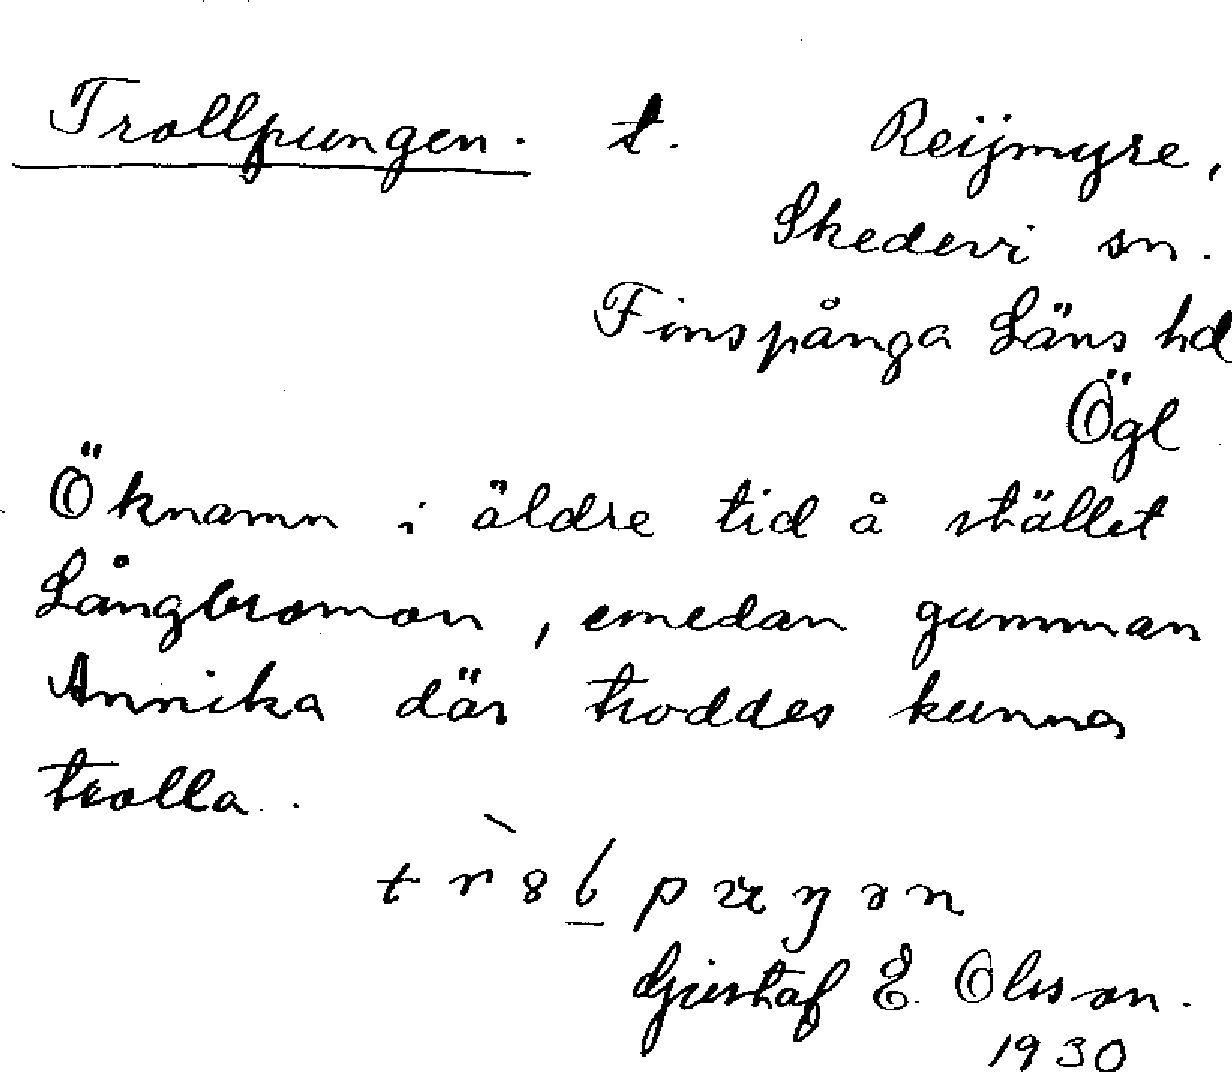 Trollpungen. t. Reijmyre,
Skedevi sn.
Finspånga Läns hd
Ögl
Öknamn i äldre tid å stället
Långbromon, emedan gumman
Annika där troddes kunna
trolla.
Gustaf E. Olsson.
1930